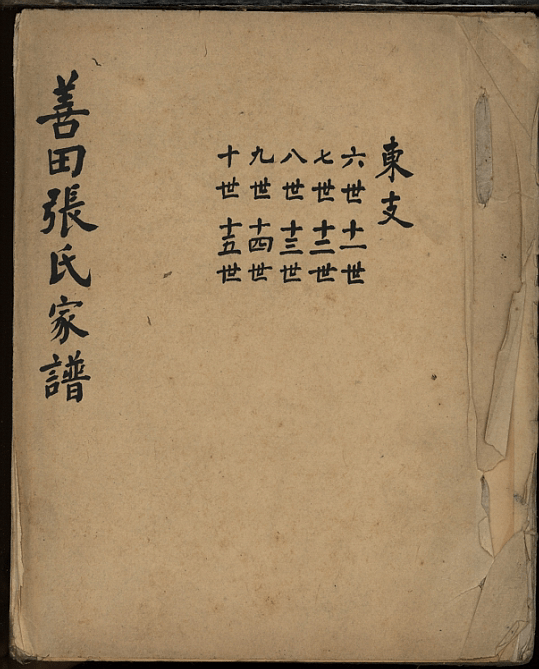 東支
六世 十一世
七世 十二世
八世 十三世
九世 十四世
十世 十五世
善田張氏家譜